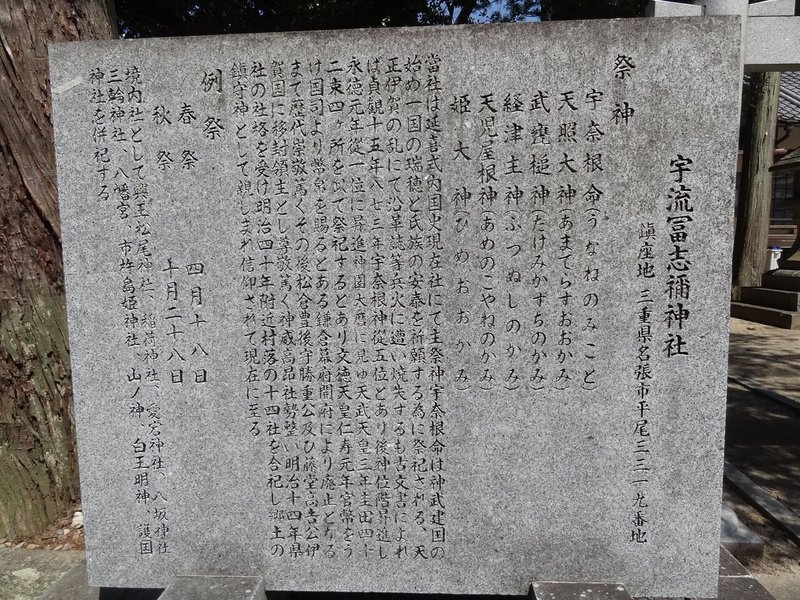 宇流冨志禰神社
鎮座地 三重県名張市平尾三三一九番地
祭神
宇奈根命(うなねのみこと)
天照大神(あまてらすおおかみ)
武甕槌神(たけみかずちのかみ)
経津主神(ふつぬしのかみ)
天児屋根神(あめのこやねのかみ)
姫大神(ひめおおかみ)
當社は延喜式内国史現在社にて主祭神宇奈根命は神武建国の
始め一国の瑞穂と氏族の安泰を祈願する為に祭祀される、天
正伊賀の乱にて沿革誌等兵火に遭い焼失するも古文書によれ
ば貞観十五年八七三年宇奈根神従五位とあり後神位階昇進し
永徳元年従一位に昇進神国大暦に見ゆ天武天皇三年圭田四十
二束四ヶ所を以て祭祀するとあり文徳天皇仁寿元年官幣をう
け国司より幣帛を賜るとある鎌倉幕府開府により廃止となる
まて歴代崇敬篤くその後松倉豊後守勝重公及ひ藤堂高吉公伊
賀国に移封領主とし尊敬篤く神威高昂社勢整い明治十四年県
社の社格を受け明治四十年附近村落の十四社を合祀し郷土の
鎮守神として親しまれ信仰されて現在に至る
例祭
春祭 四月十八日
秋祭 十月二十八日
境内社として興玉松尾神社、稲荷神社、愛宕神社、八坂神社
三輪神社、八幡宮、市杵島姫神社、山ノ神、白玉明神、護国
神社を併祀する